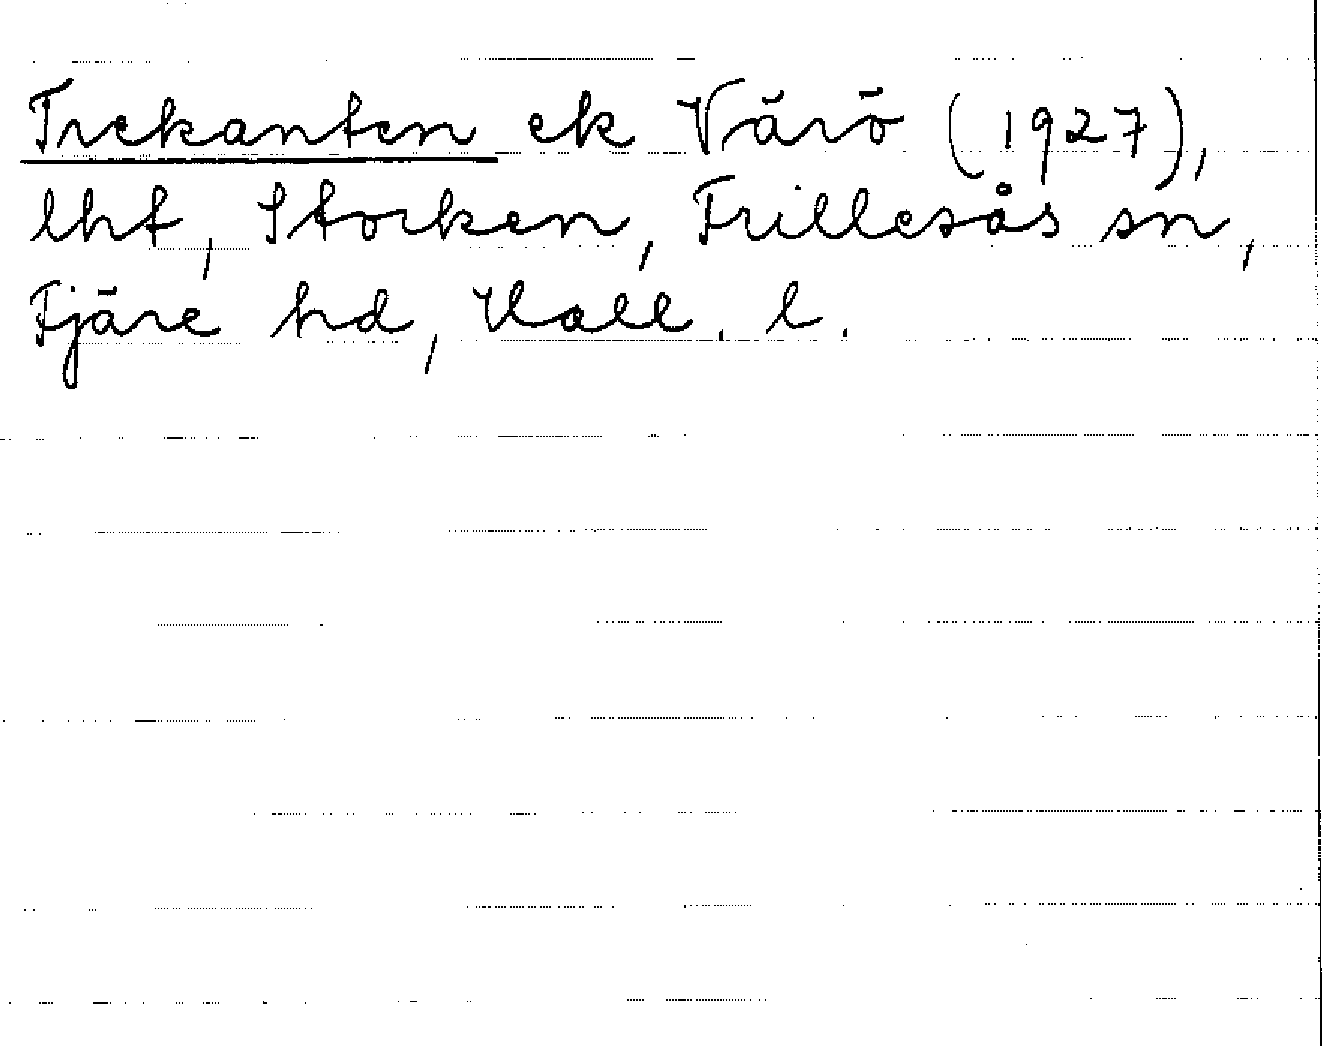 Trekanten ek Värö (1927),
lht, Stocken, Frillesås sn,
Fjäre hd, Hall. l.